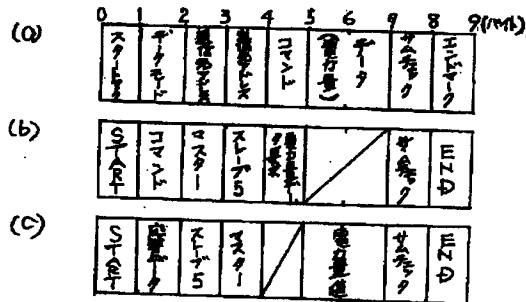 0 1 2 3 4 5 6 7 8 9(バイト)
(a) スタートマーク データモード 送信元アドレス 送信先アドレス コマンド (電力量) データ サムチェック エンドマーク
(b) START コマンド マスター スレーブ5 サムチェック END
(c) START 応答データ スレーブ5 マスター 電力量値 サムチェック END